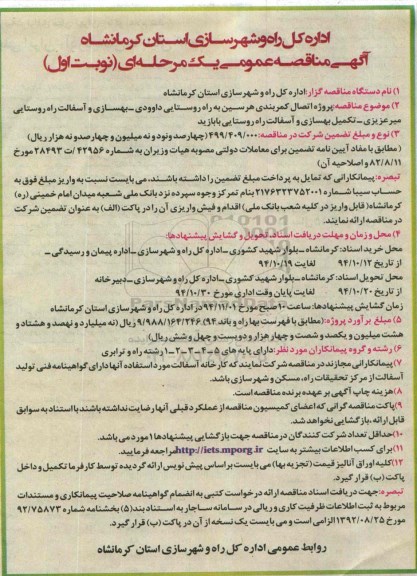 اداره کل راه و شهرسازی استان کرمانشاه
آگهی مناقصه عمومی یک مرحله‌ای (نوبت اول)
۱) نام دستگاه مناقصه گزار: اداره کل راه و شهرسازی استان کرمانشاه
۲) موضوع مناقصه: پروژه اتصال کمربندی هرسین به راه روستایی داوودی – بهسازی و آسفالت راه روستایی
میر عزیزی – تکمیل بهسازی و آسفالت راه روستایی بابازید
۳) نوع و مبلغ تضمین شرکت در مناقصه: ۴۹۹/۴۰۹/۰۰۰ (چهارصد و نود و نه میلیون و چهارصد و نه هزار ریال)
(مطابق با مفاد آیین نامه تضمین برای معاملات دولتی مصوبه هیات وزیران به شماره ۴۲۹۵۶/ت ۲۸۴۹۳ مورخ
۸۲/۸/۱۱ و اصلاحیه آن)
تبصره: پیمانکارانی که تمایل به پرداخت مبلغ تضمین را داشته باشند، می بایست نسبت به واریز مبلغ فوق به
حساب سیبا شماره ۲۱۷۶۴۵۲۰۰۱ بنام تمرکز وجوه سپرده نزد بانک ملی شعبه میدان امام خمینی (ره)
کرمانشاه (قابل واریز در کلیه شعب بانک ملی) اقدام و فیش واریزی آن را در پاکت (الف) به عنوان تضمین شرکت
در مناقصه ارائه نمایند.
۴) محل و زمان و مهلت دریافت اسناد، تحویل و گشایش پیشنهادها:
محل خرید اسناد: کرمانشاه – بلوار شهید کشوری – اداره کل راه و شهرسازی – اداره پیمان و رسیدگی –
از تاریخ ۹۴/۱۰/۱۲ لغایت ۹۴/۱۰/۱۹
محل تحویل اسناد: کرمانشاه – بلوار شهید کشوری – اداره کل راه و شهرسازی – دبیرخانه
از تاریخ ۹۴/۱۰/۲۰ لغایت پایان وقت اداری مورخ ۹۴/۱۰/۳۰
زمان گشایش پیشنهادها: ساعت ۱۰ صبح مورخ ۹۴/۱۱/۰۱ در اداره کل راه و شهرسازی استان کرمانشاه
۵) مبلغ برآورد پروژه: (مطابق با فهرست بها راه و باند ۹۴) ۹/۹۸۸/۱۶۴/۲۴۶ ریال (نه میلیارد و نهصد و هشتاد و
هشت میلیون و یکصد و شصت و چهار هزار و دویست و چهل و شش ریال)
۶) رشته و گروه پیمانکاران مورد نظر: دارای پایه های ۵-۴-۳-۲-۱ رشته راه و ترابری
۷) پیمانکارانی مجازند در مناقصه شرکت نمایند که کارخانه آسفالت مورد استفاده آنها دارای گواهینامه فنی تولید
آسفالت از مرکز تحقیقات راه، مسکن و شهرسازی باشد.
۸) هزینه چاپ آگهی بر عهده برنده مناقصه است.
۹) پاکت مناقصه گرانی که اعضای کمیسیون مناقصه از عملکرد قبلی آنها رضایت نداشته باشند با استناد به سوابق
قابل ارائه، بازگشایی نخواهد شد.
۱۰) حداقل تعداد شرکت کنندگان در مناقصه جهت بازگشایی پیشنهادها ۱ مورد می باشد.
۱۱) برای کسب اطلاعات بیشتر به سایت http://iets.mporg.ir مراجعه فرمایید.
۱۲) کلیه اوراق آنالیز قیمت (تجزیه بها) می بایست بر اساس پیش نویس ارائه گردیده توسط کارفرما تکمیل و داخل
پاکت (ب) قرار گیرد.
تبصره: جهت دریافت اسناد مناقصه ارائه درخواست کتبی به انضمام گواهینامه صلاحیت پیمانکاری و مستندات
مربوط به ثبت اطلاعات ظرفیت کاری و ریالی در سامانه ساجار به استناد بند (۵) بخشنامه شماره ۹۲/۷۵۸۷۳
مورخ ۱۳۹۲/۰۸/۲۵ الزامی است و می بایست یک نسخه از آن در پاکت (ب) قرار گیرد.
روابط عمومی اداره کل راه و شهرسازی استان کرمانشاه